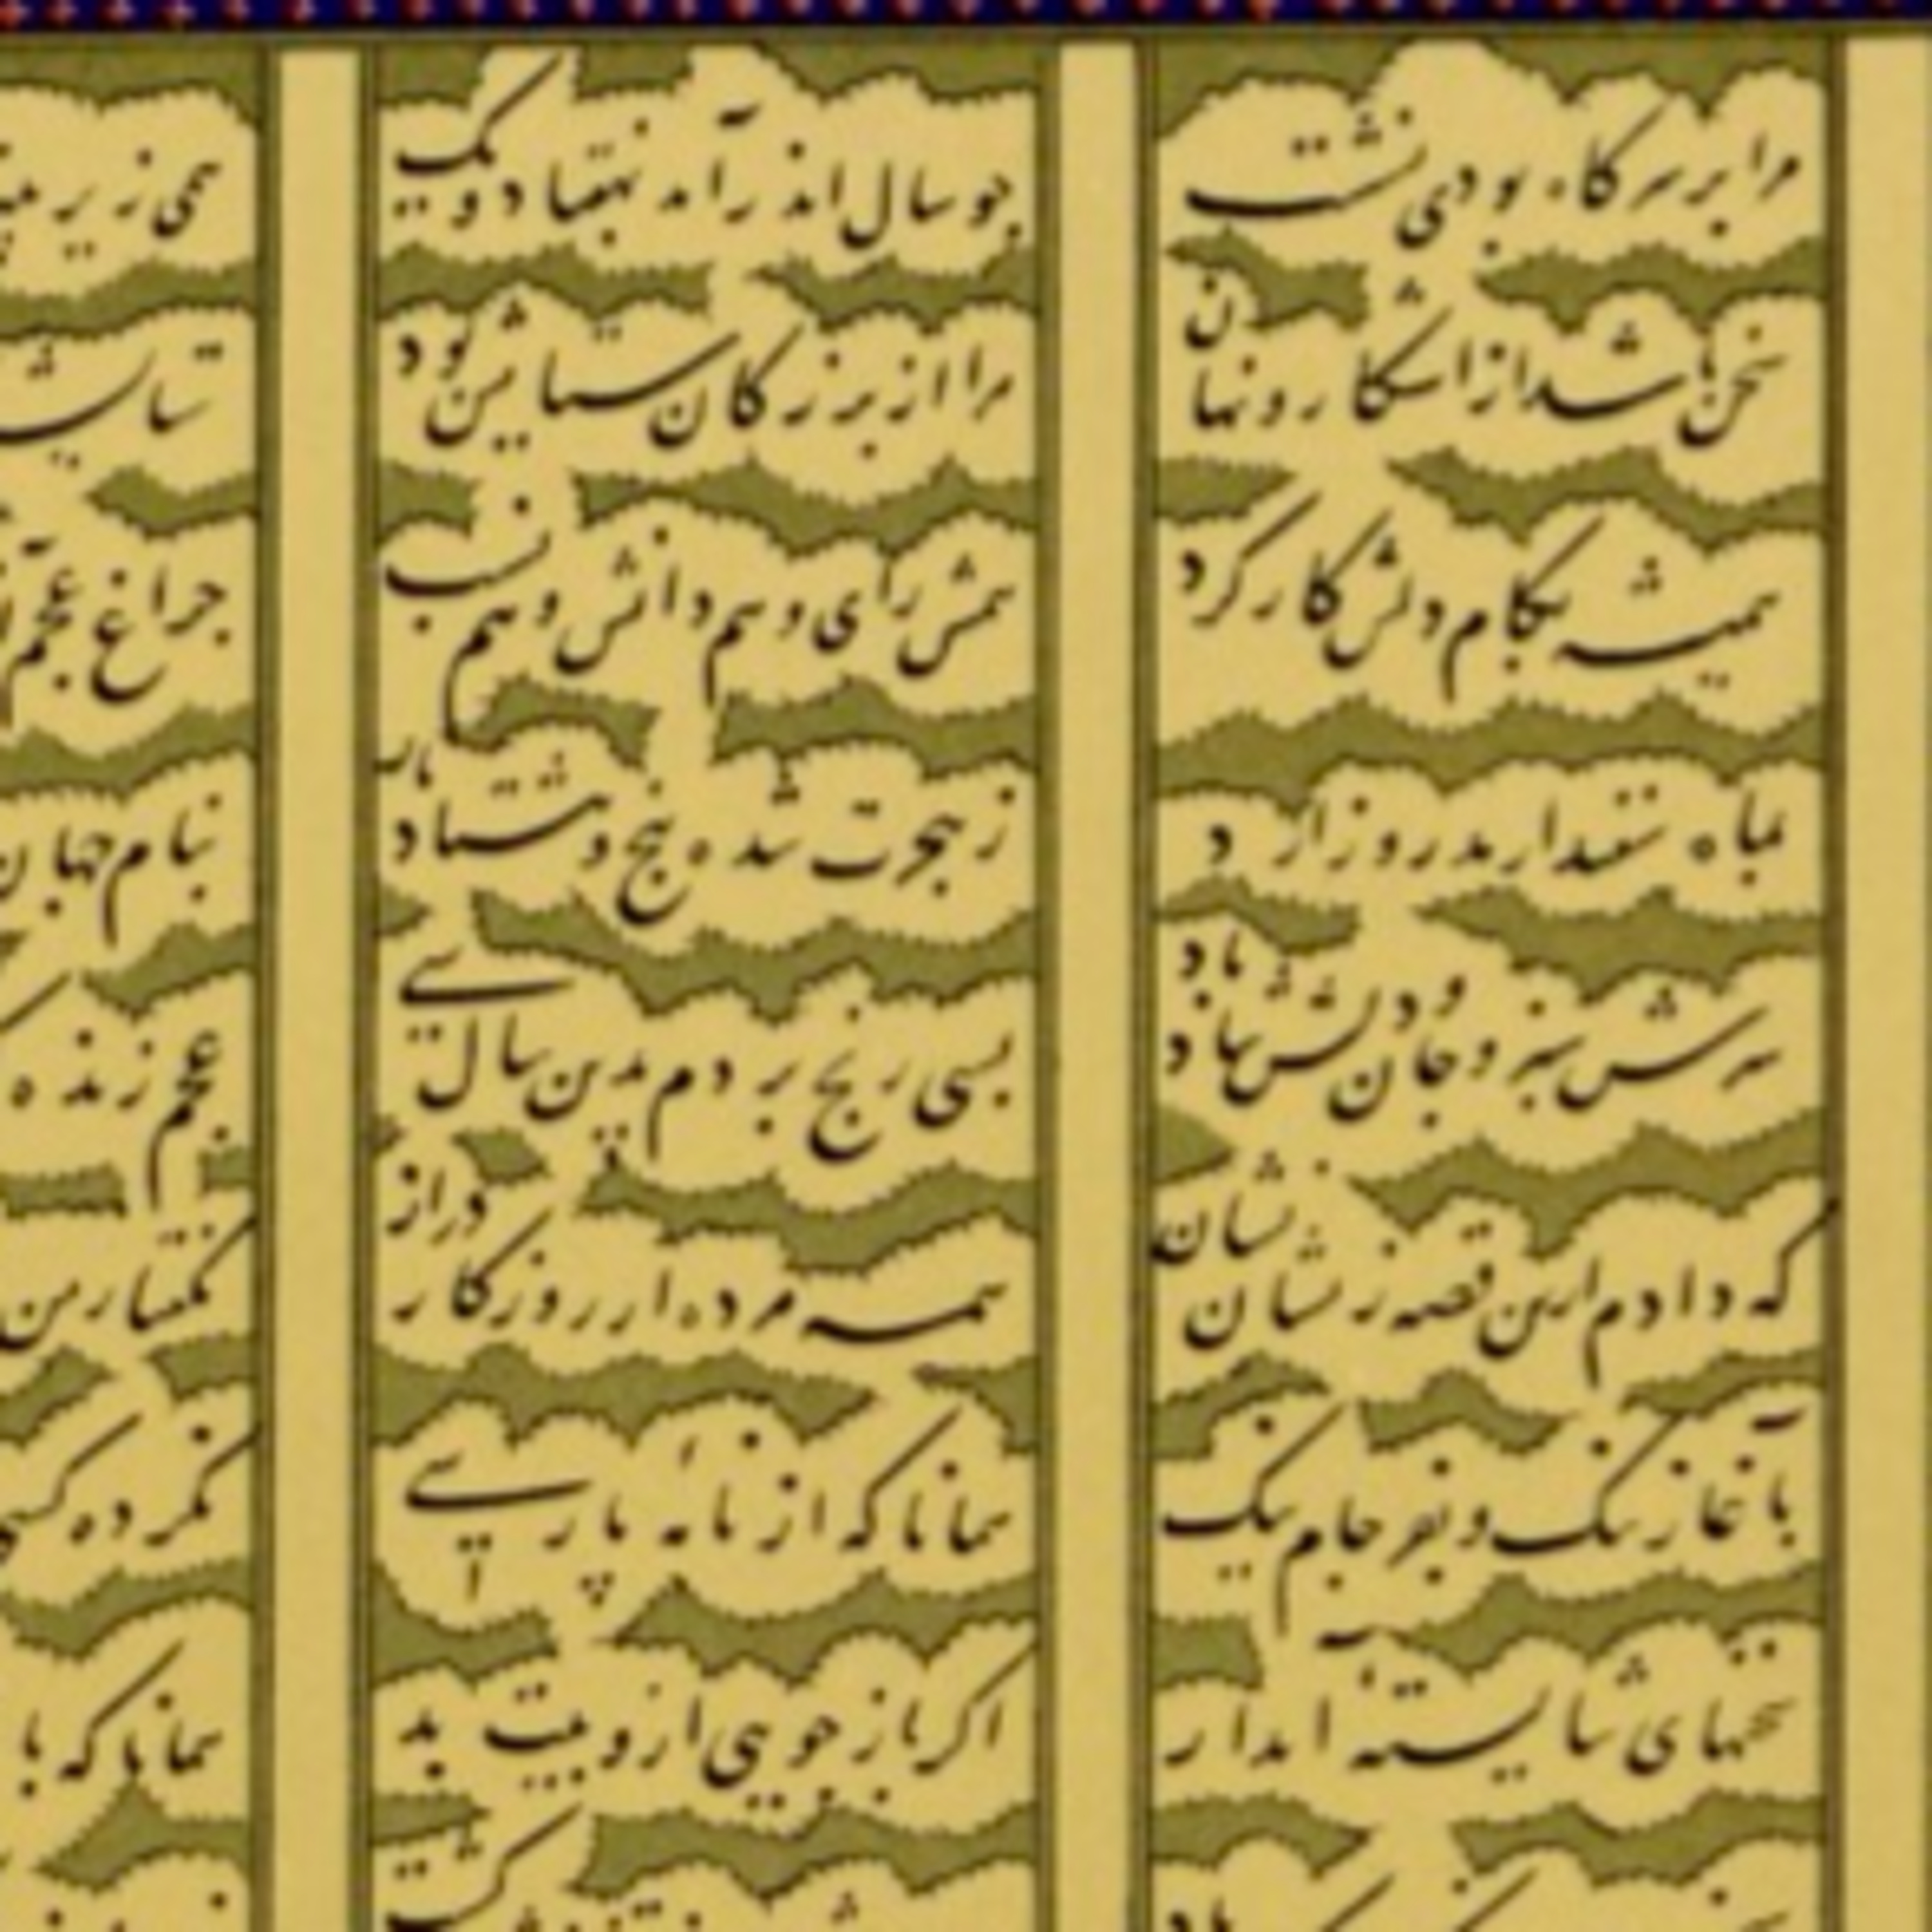 مرا بر سر کاه بودی نشت
سخن‌ها شد از اشکارو نهان
همیشه بکام دلش کار کرد
بماه سفندارمد روز ارد
سرش سبز و جان و دلش شاد باد
که دادم ازین قصه ز نشان نشان
بآغاز نیک و بفرجام نیک
سخنهای شایسته آبدار
جو سال اندر آمد بهفتاد و یک
مرا از بزرکان ستایش بود
همش رای و هم دانش و هم نسب
ز هجرت شده پنج هشتاد بار
بسی رنج بردم بدین سال سی
همه مرده از روزکار دراز
همانا که از نامه پارسی
اکر باز جویی ازو بیت بد
همی زیر
ستایش
جراغ عجم
بنام جهان
عجم زنده
بکفتار من
نکرده کسی
همانا که با